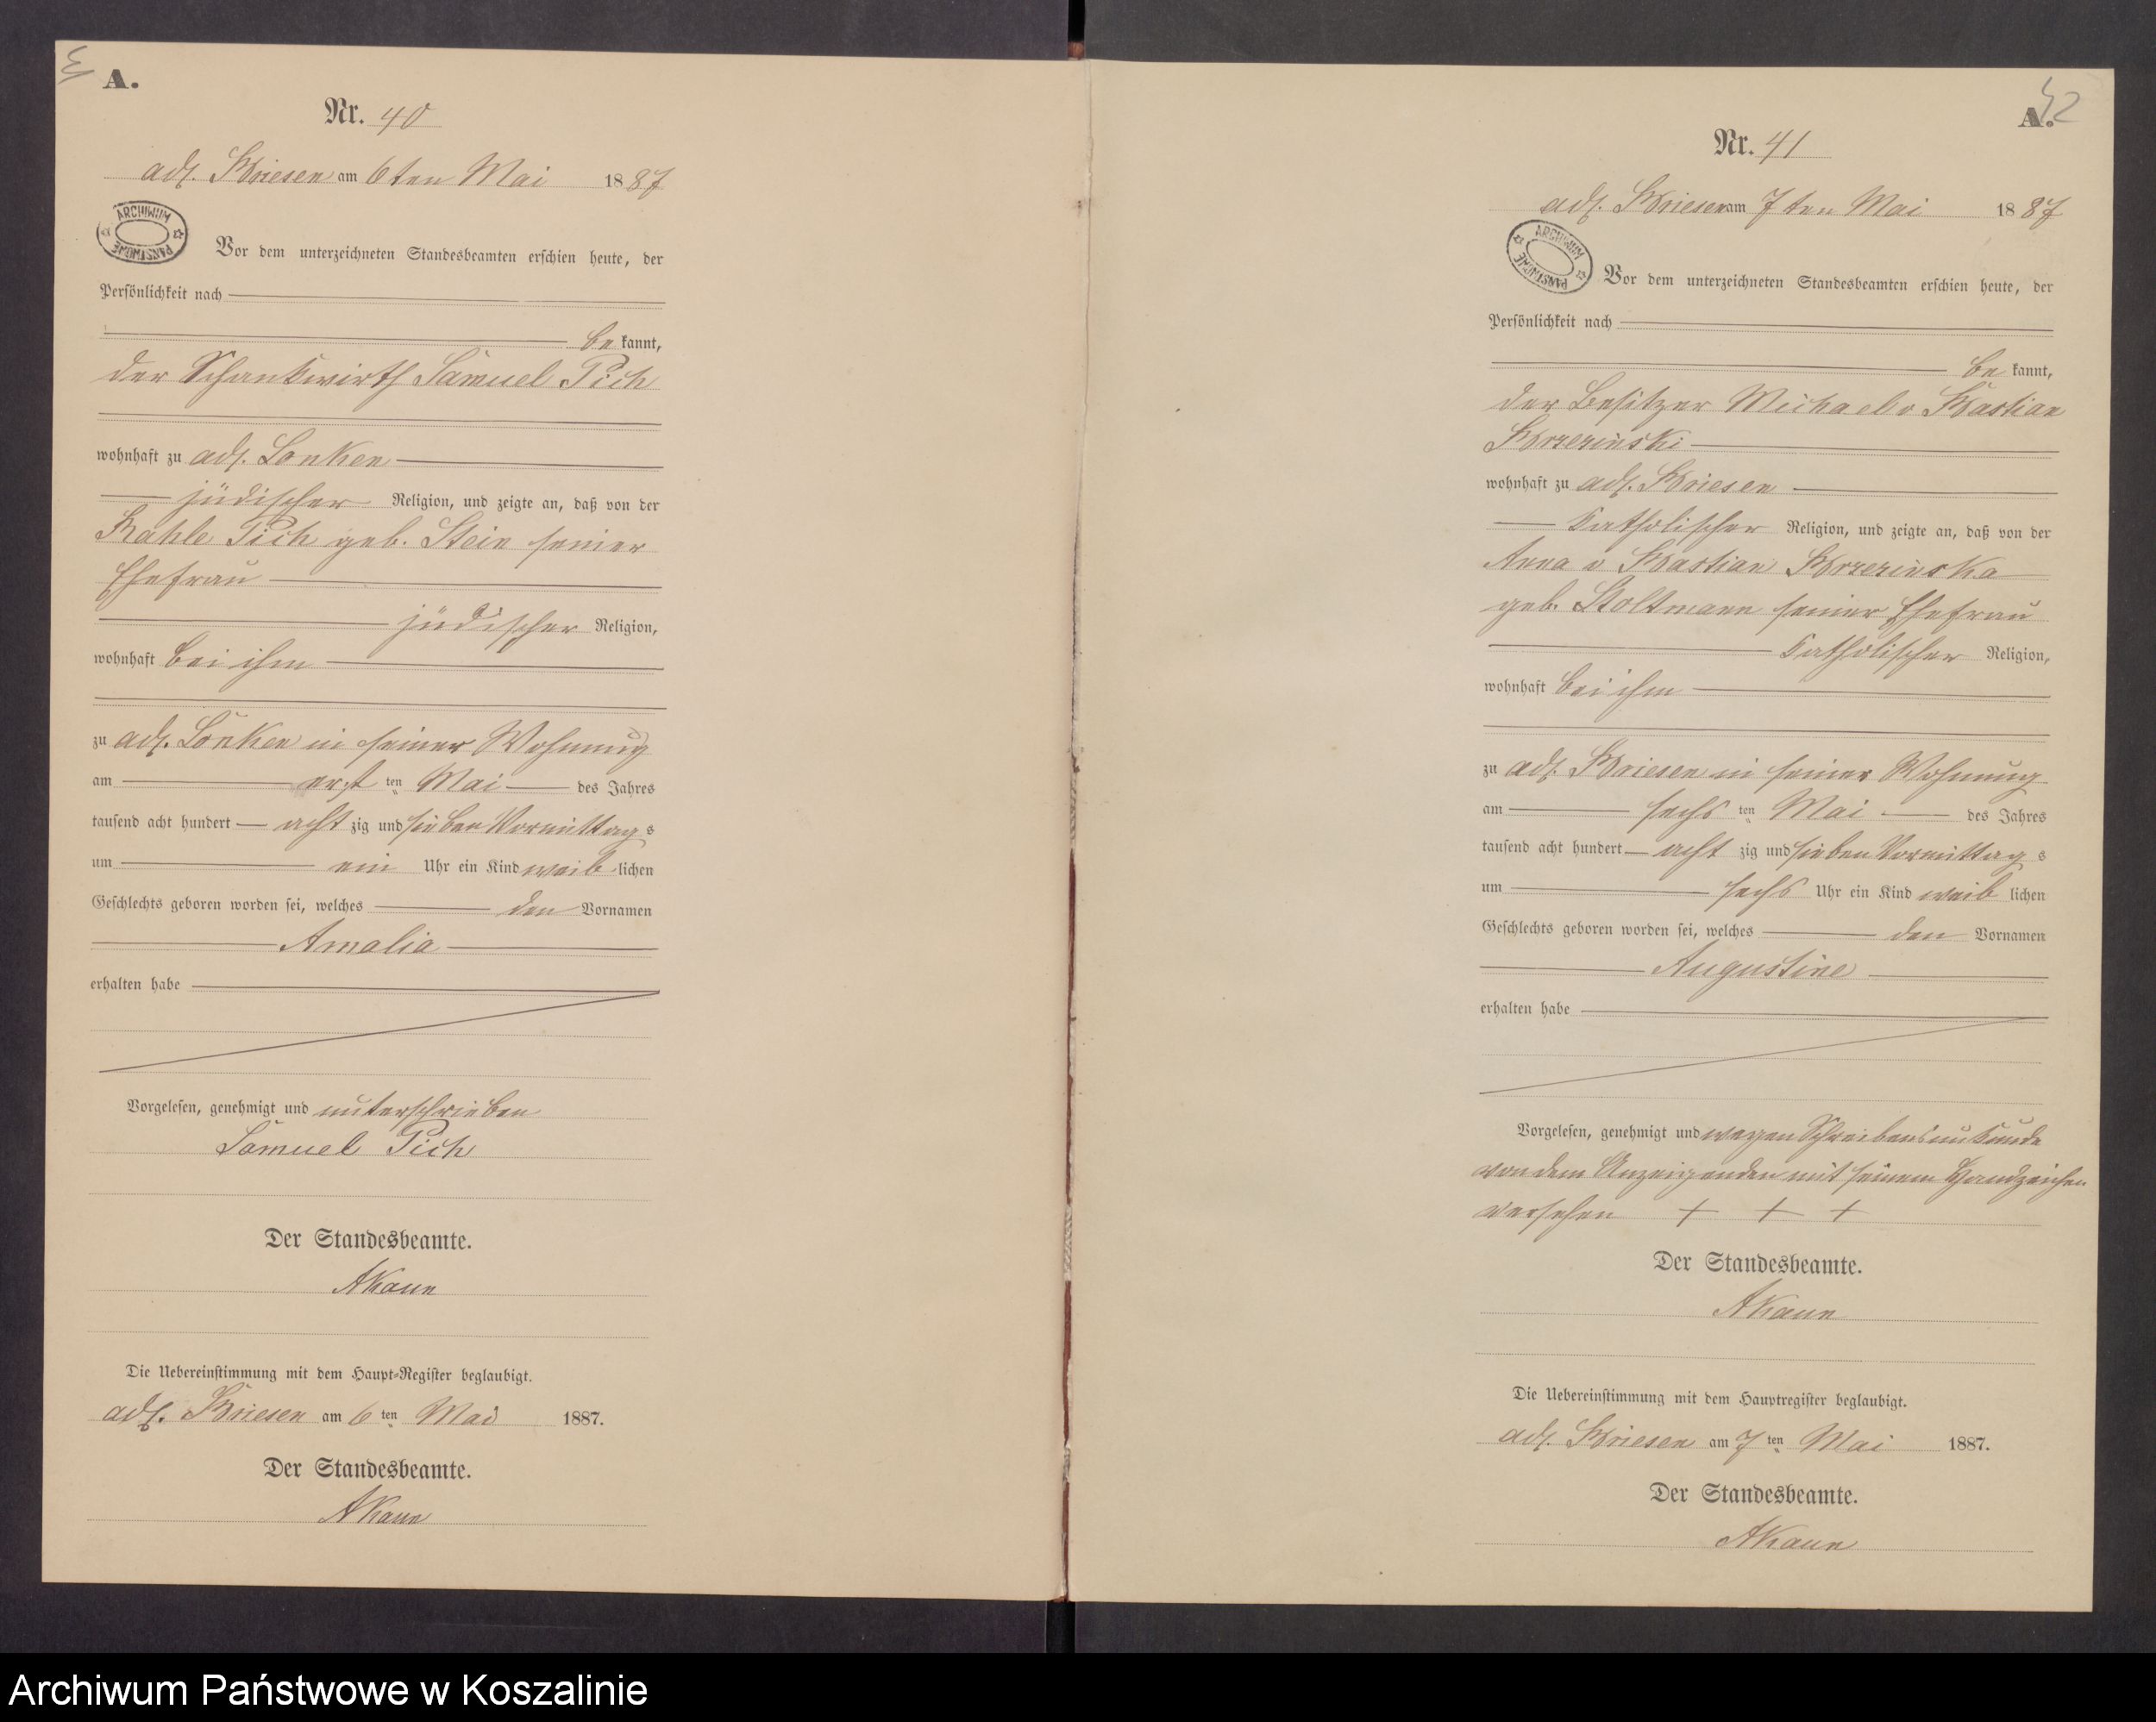 A.
Nr. 40
adl. Briesen am 6ten Mai 1887
ARCHIWUM PAŃSTWOWE
Vor dem unterzeichneten Standesbeamten erschien heute, der
Persönlichkeit nach
be kannt,
der Schankwirth Samuel Pich
wohnhaft zu adl. Lonken
jüdischer Religion, und zeigte an, daß von der
Pich geb. Stein seiner
Ehefrau
jüdischer Religion,
wohnhaft bei ihm
zu adl. Lonken in seiner Wohnung
am erst ten Mai des Jahres
tausend acht hundert acht zig und sieben Vormittag s
um ein Uhr ein Kind weib lichen
Geschlechts geboren worden sei, welches den Vornamen
Amalia
erhalten habe
Vorgelesen, genehmigt und unterschrieben
Samuel Pich
Der Standesbeamte.
Die Uebereinstimmung mit dem Haupt-Register beglaubigt.
adl. Briesen am 6 ten Mai 1887.
Der Standesbeamte.
A.
Nr. 41
adl. Briesen am 7ten Mai 1887
ARCHIWUM PAŃSTWOWE
Vor dem unterzeichneten Standesbeamten erschien heute, der
Persönlichkeit nach
be kannt,
der Besitzer Michael v
wohnhaft zu adl. Briesen
katholischer Religion, und zeigte an, daß von der
Anna v
geb. Stoltmann seiner Ehefrau
katholischer Religion,
wohnhaft bei ihm
zu adl. Briesen in seiner Wohnung
am sechs ten Mai des Jahres
tausend acht hundert acht zig und sieben Vormittag s
um sechs Uhr ein Kind weib lichen
Geschlechts geboren worden sei, welches den Vornamen
Augustine
erhalten habe
Vorgelesen, genehmigt und wegen Schreibensunkunde
von dem Anzeigenden mit seinem Handzeichen
versehen + + +
Der Standesbeamte.
Die Uebereinstimmung mit dem Hauptregister beglaubigt.
adl. Briesen am 7 ten Mai 1887.
Der Standesbeamte.
Archiwum Państwowe w Koszalinie